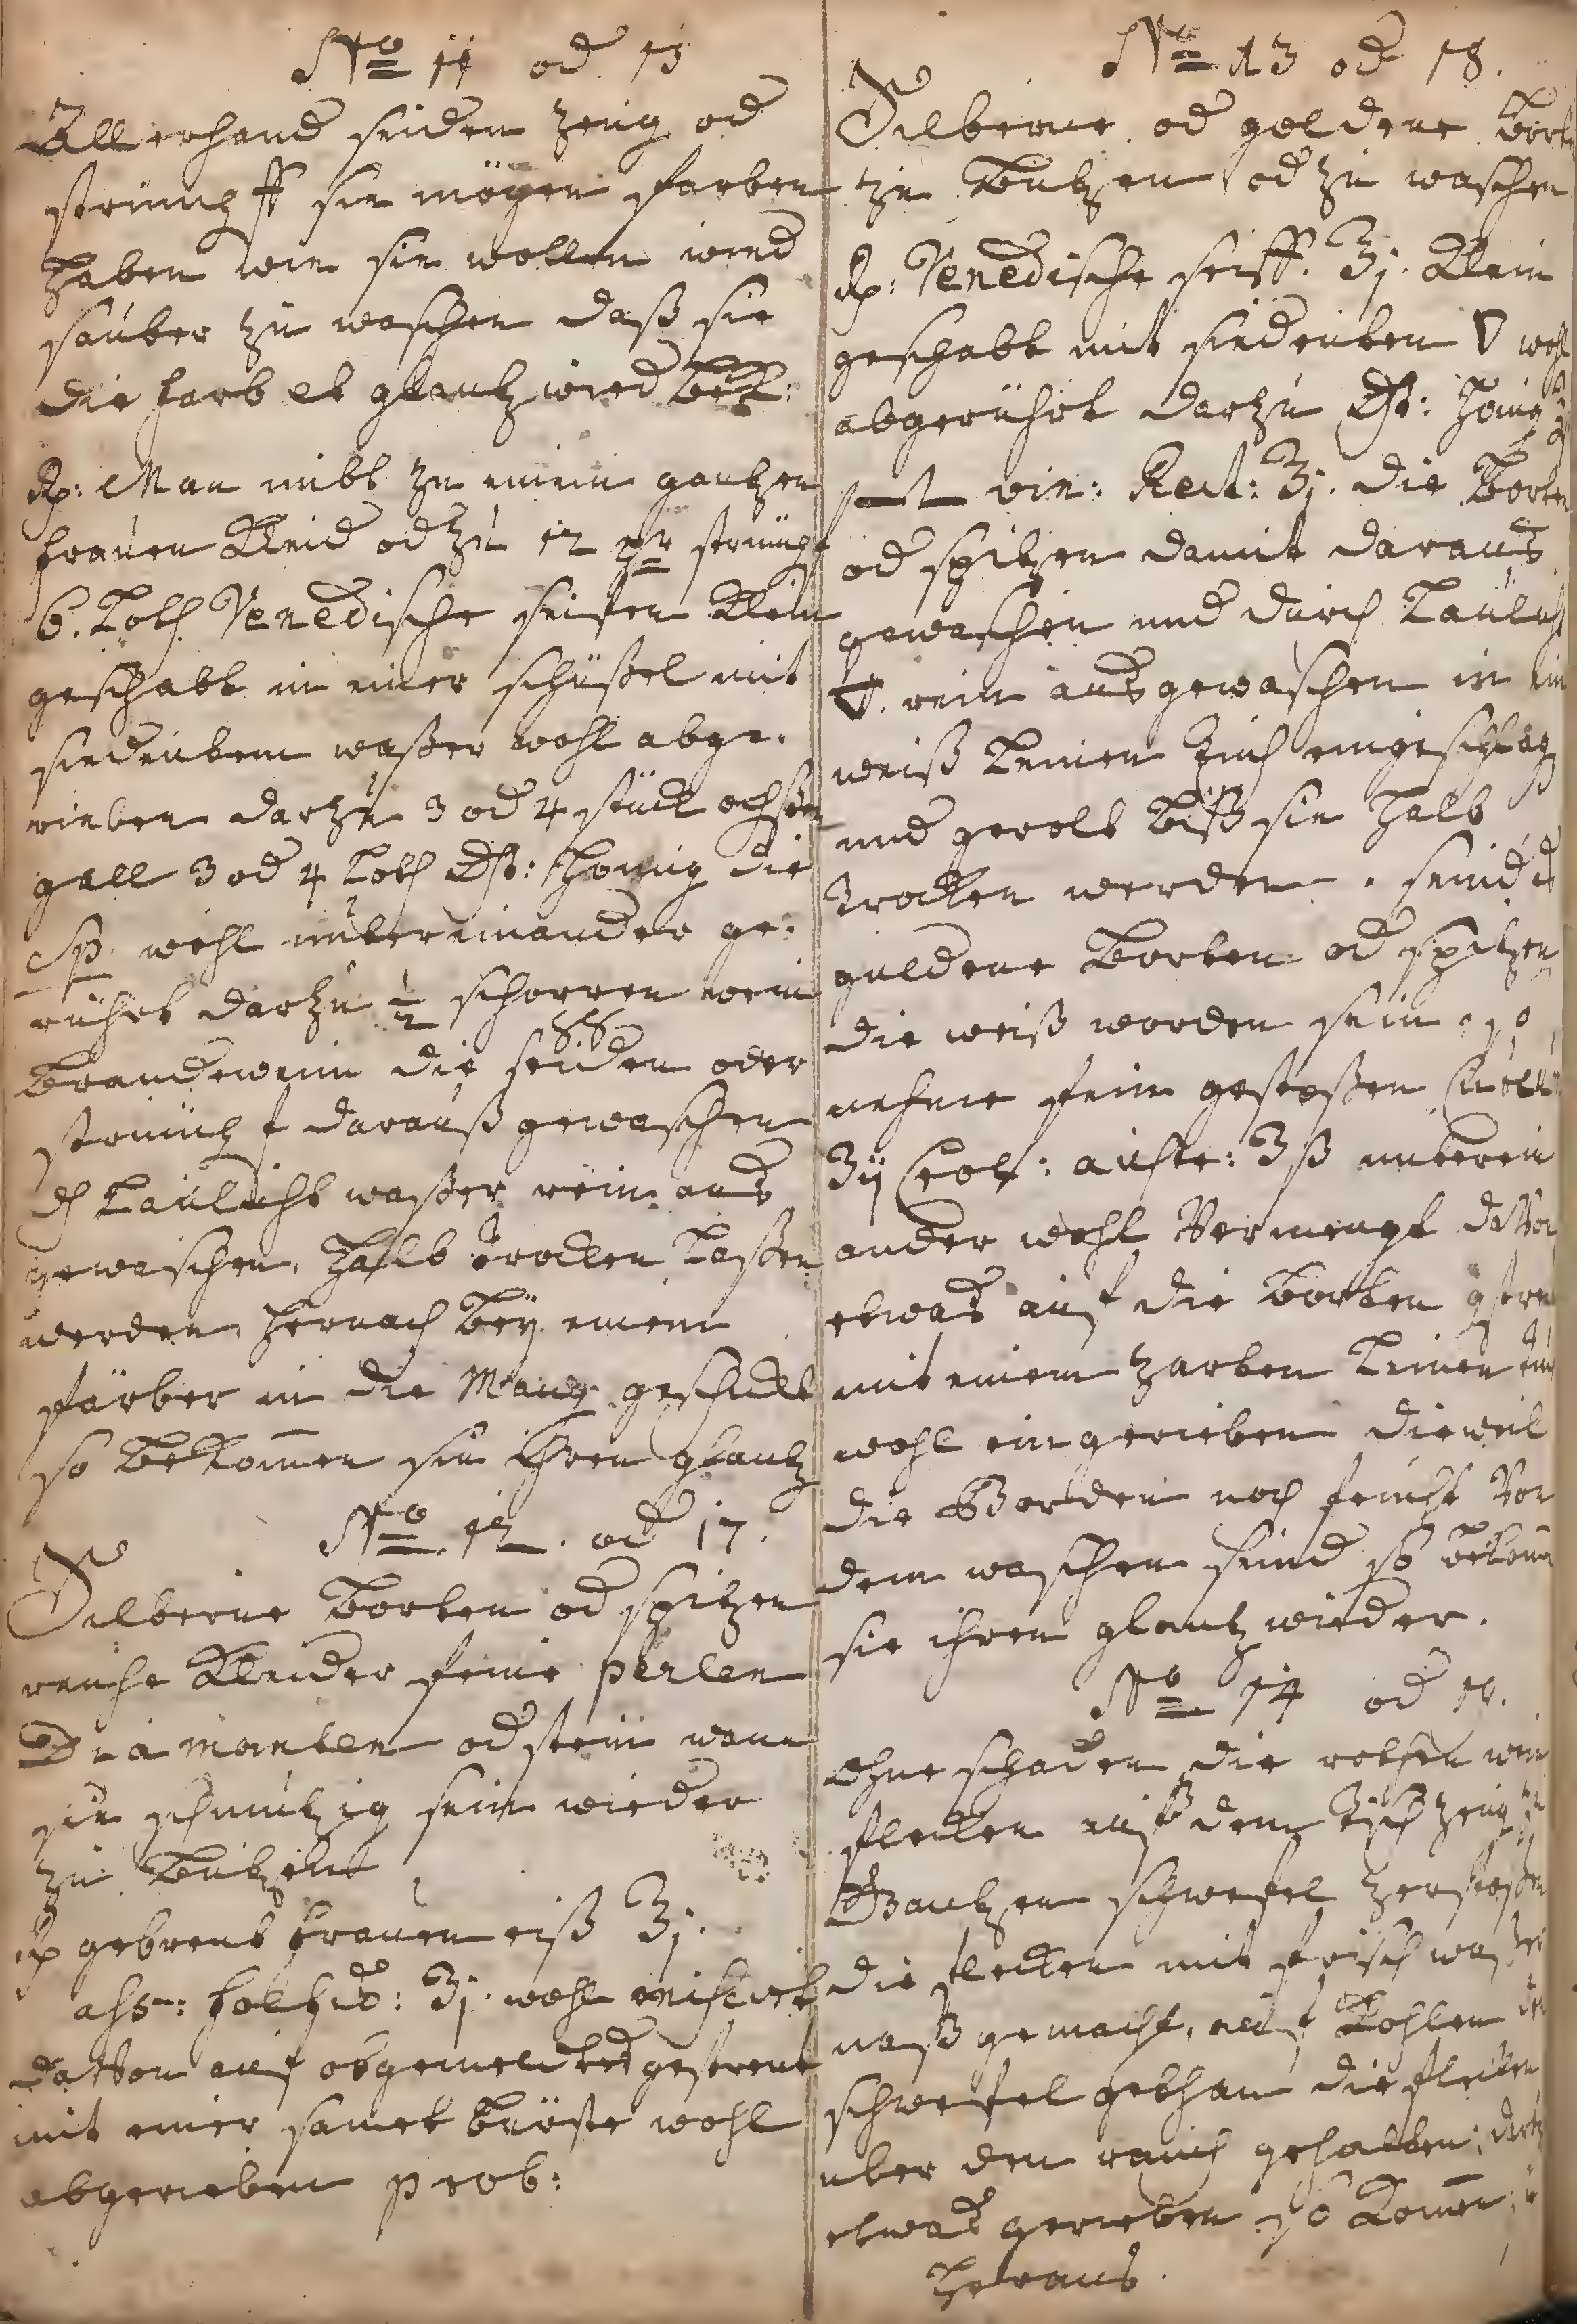 No 11 od 15
Allerhand seiden zeug od
strümpff sie mögen farben
haben wie sie wollen wied
sauber zu waschen daß sie
die farb et glantz wied bek:
Rp: Man nibt zu einem gantzen
frauen Kleid od zu 12 par strümpf
6. Loth Venedische seifen Klein
geschabt in einer schüßel mit
siedentem waßer wohl abge-
rieben darzu 3 od 4 stück ochsen
gall 3 od 4 Loth Honig die
Sp wohl untereinander ge-
rührt darzu ½ schoppen wein
brandewein die seiden oder
strümpf darauß gewaschen
Laulicht waßer rein aus
gewaschen, halb trocken laßen
werden hernach bey einem
färber in die Mang geschickt
so bekomen sie ihren glantz
No 12. od 17.
Silberne borten od spitzen
reiche Kleider feine perlen
Diamanten od stein wann
sie schmutzig sein wieder
zu butzen
Rp gebrent frauen eiß ℥j.
wohl misciert
davon auf obgemeldtes gestreut
mit einer samet bürste wohl
abgerieben prob:
No 13 od 18.
Silberne od goldene bort
zu butzen od zu waschen
Rp: Venedische seiff. ℥j. Klein
geschabt mit siedenten ▽ wohl
abgerührt darzu Honig
vin: Rect: ℥j. die borten
od spitzen damit daraus
gewaschen und durch Laulicht
▽. rein ausgewaschen in ein
weiß Leinen Tuch eingeschlag
und gerolt biß sie halb
trocken werden. seind
guldene borten od spitzen
die weiß worden sein so
nehme fein gestoßen
℥ij ℥ß unterein
ander wohl Vermengt davon
etwas auf die borten gstreu
mit einem zarten Leinen
wohl eingerieben dieweil
die Borden noch feucht Von
dem waschen seind so bekom
sie ihren glantz wieder.
No 14 od
Ohne schaden die rothen wein
flecken auß dem tisch zeug zu
Gantzen schwefel zerstoßen
die flecken mit frisch waßer
naß gemacht, auf Kohlen den
schwefel gethan die flecken
uber den rauch gehalten,
etwas gerieben so Komen
heraus.